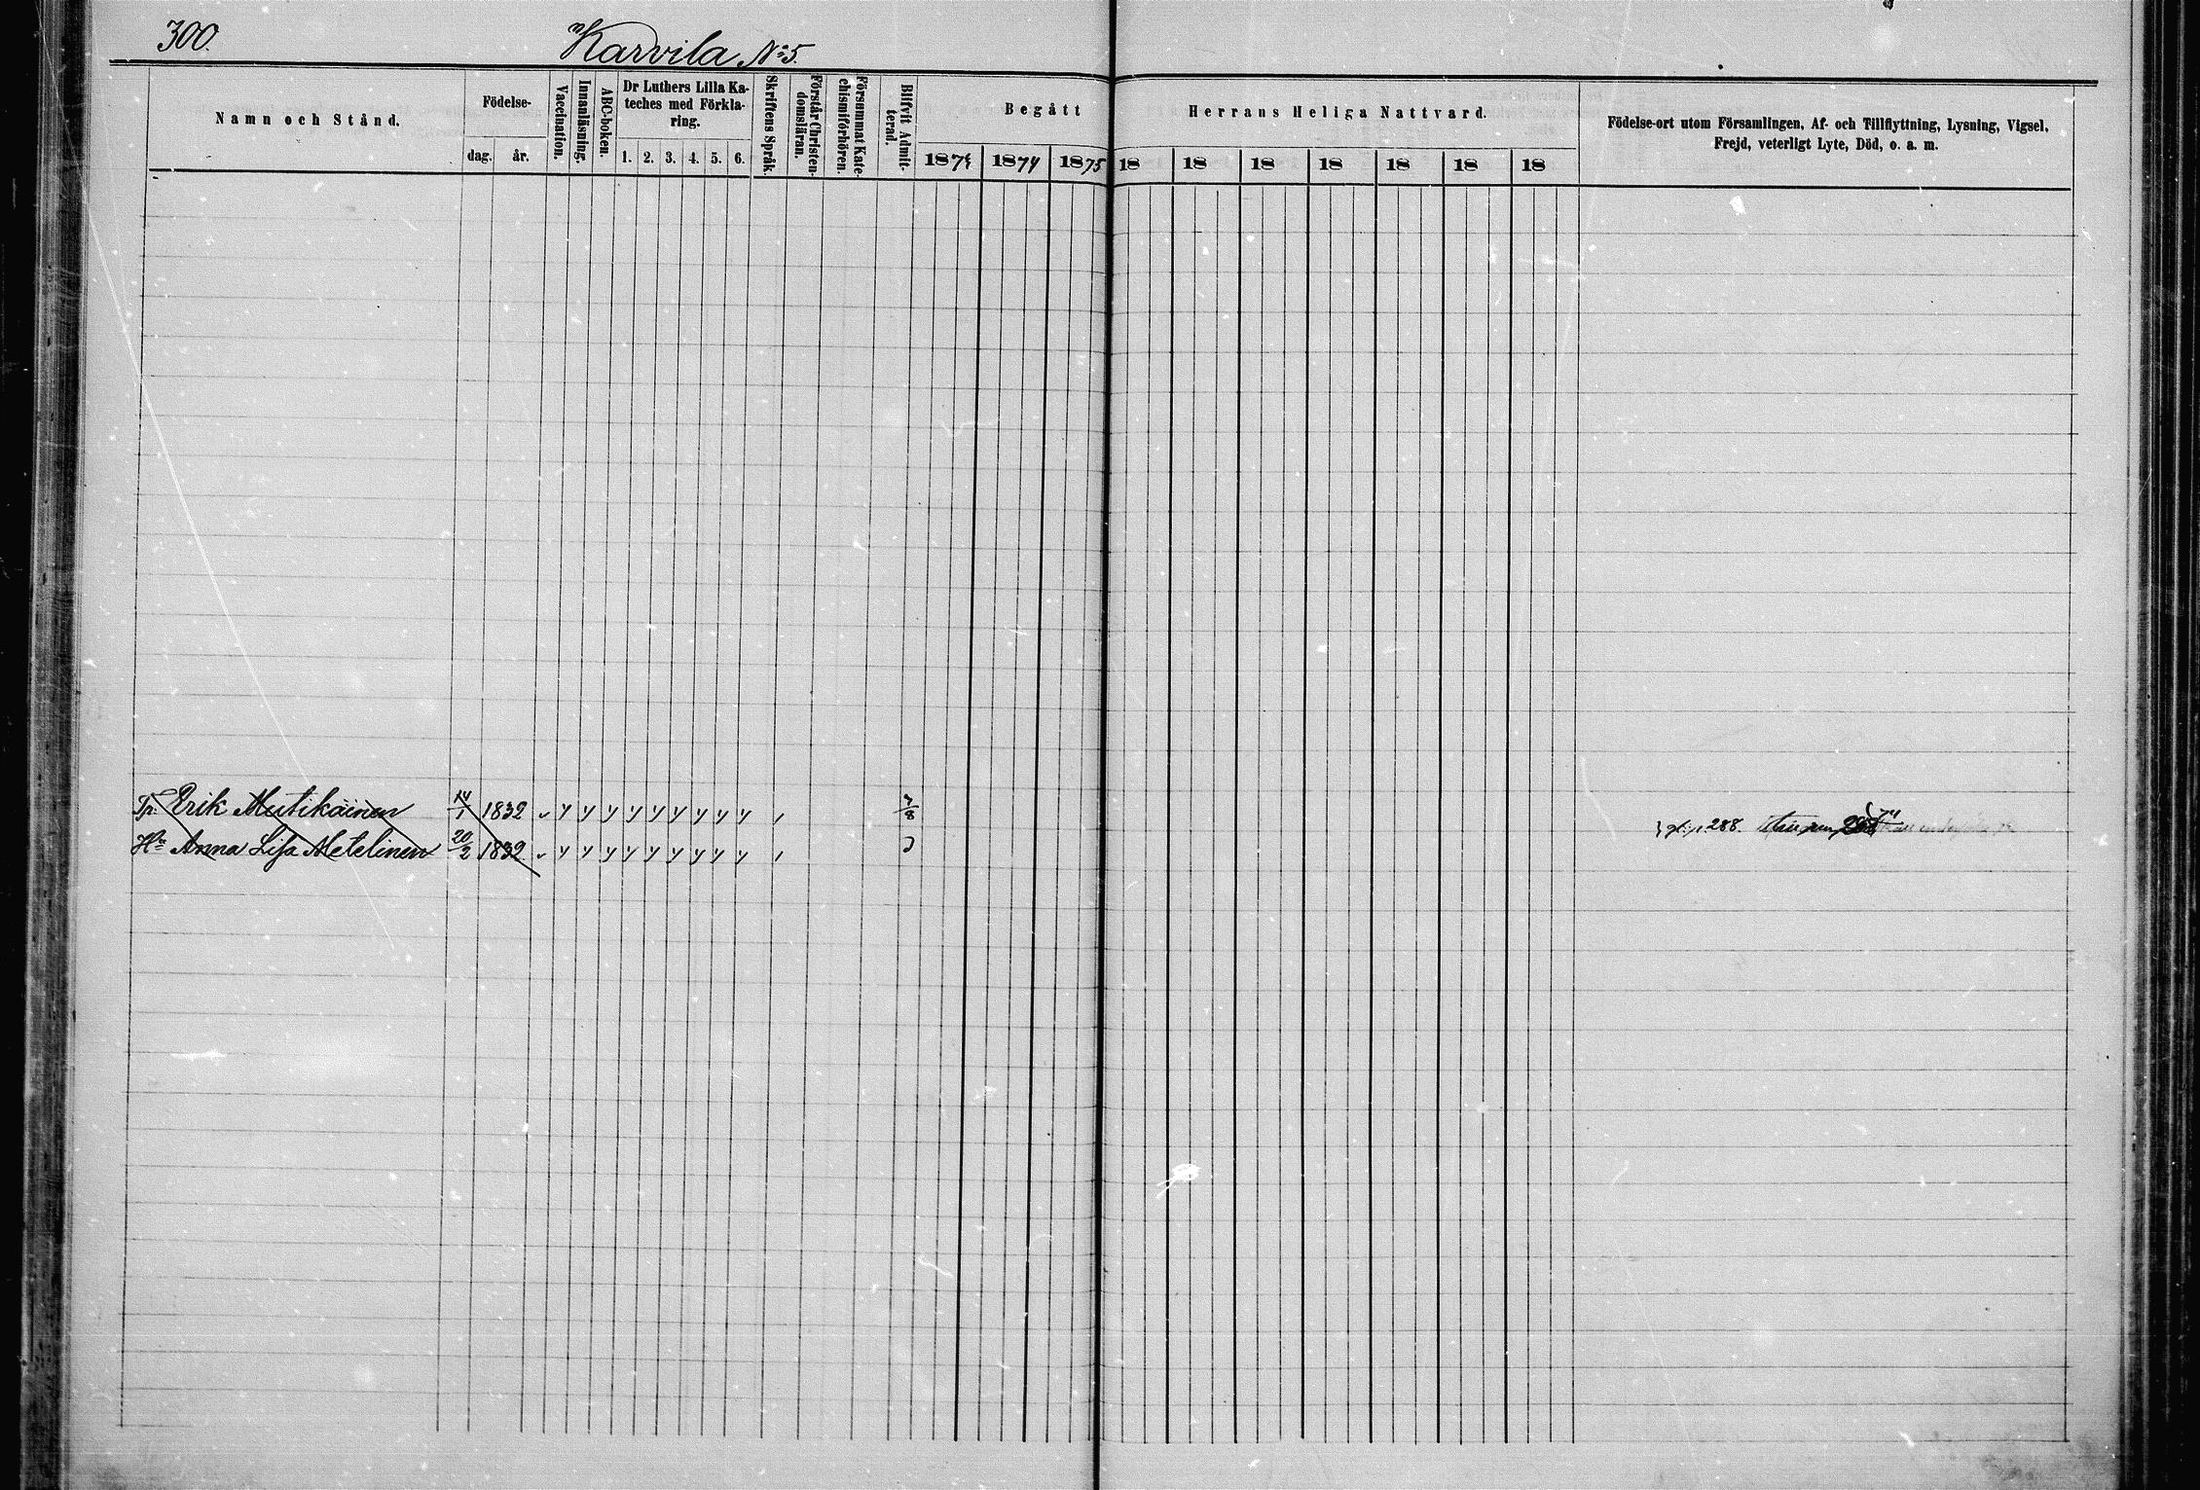 300.
Karvila No 5.
Namn och Stånd.
Födelse-
dag. år.
Vaccination.
Innanläsning.
ABC-boken.
Dr Luthers Lilla Ka-
teches med Förkla-
ring.
1. 2. 3. 4. 5. 6.
Skriftens Språk.
Förstår Christen-
domsläran.
Försummat Kate-
chismiförhören.
Blifvit Admit-
terad.
Begått Herrans Heliga Nattvard.
1873 1874 1875 18 18 18 18 18 18 18
Födelse-ort utom Församlingen, Af- och Tillflyttning, Lysning, Vigsel,
Frejd, veterligt Lyte, Död, o. a. m.
Tp. Erik Mutikainen 14/1 1832 7/8
Hu Anna Lisa Metelinen 20/2 1832
288.